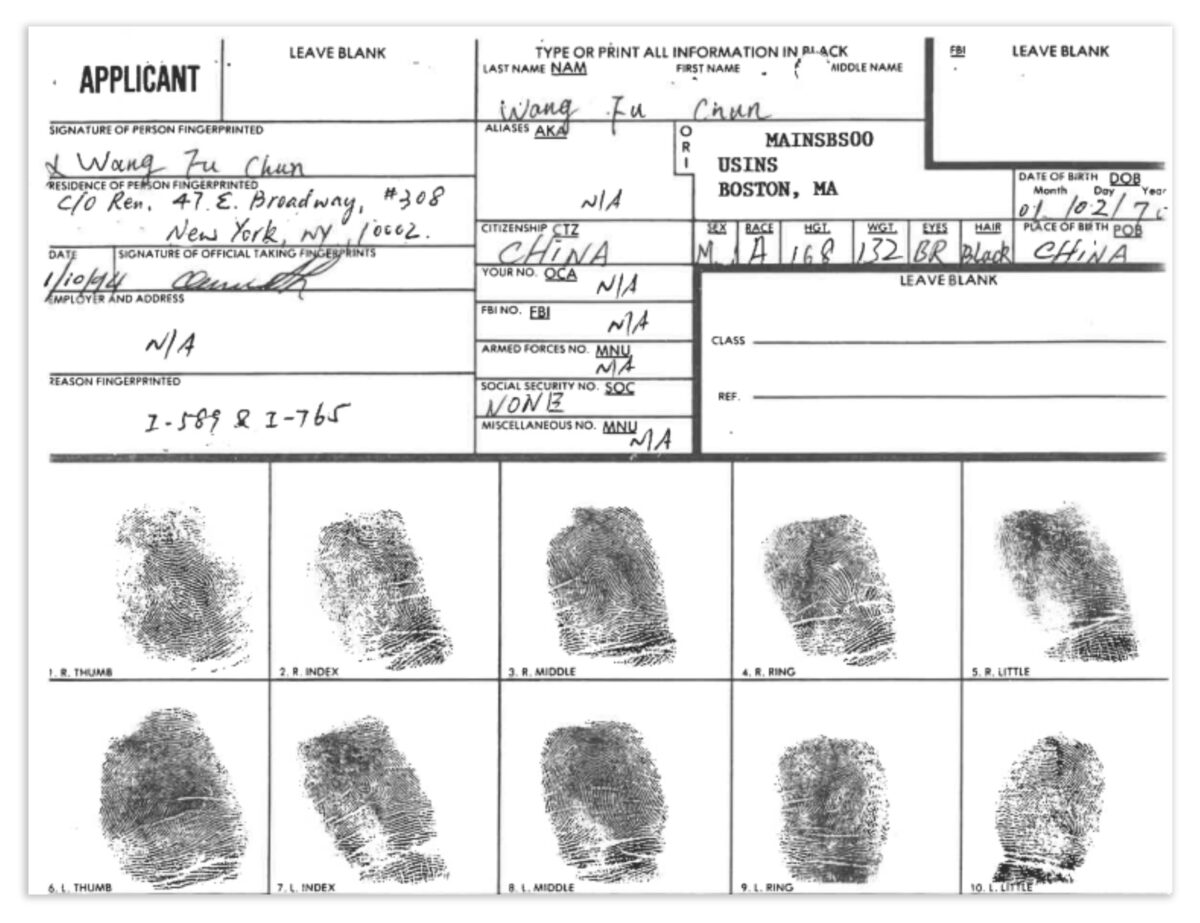 APPLICANT
LEAVE BLANK
TYPE OR PRINT ALL INFORMATION IN BLACK
LAST NAME NAM FIRST NAME MIDDLE NAME
Wang Fu Chun
FBI LEAVE BLANK
SIGNATURE OF PERSON FINGERPRINTED
x Wang Fu Chun
ALIASES AKA
N/A
ORI
MAINSBSOO
USINS
BOSTON, MA
RESIDENCE OF PERSON FINGERPRINTED
C/O Ren. 47 E. Broadway, #308
New York, NY, 10002.
DATE OF BIRTH DOB
Month Day Year
01 /02/
CITIZENSHIP CTZ
CHINA
SEX RACE HGT. WGT. EYES HAIR PLACE OF BIRTH POB
M. A 168 132 BR Black CHINA
DATE SIGNATURE OF OFFICIAL TAKING FINGERPRINTS
1/10/94
YOUR NO. OCA
N/A
LEAVE BLANK
EMPLOYER AND ADDRESS
N/A
FBI NO. FBI
N/A
CLASS
ARMED FORCES NO. MNU
N/A
REASON FINGERPRINTED
I-589 & I-765
SOCIAL SECURITY NO. SOC
NONE
REF.
MISCELLANEOUS NO. MNU
N/A
1. R. THUMB 2. R. INDEX 3. R. MIDDLE 4. R. RING 5. R. LITTLE
6. L. THUMB 7. L. INDEX 8. L. MIDDLE 9. L. RING 10. L. LITTLE